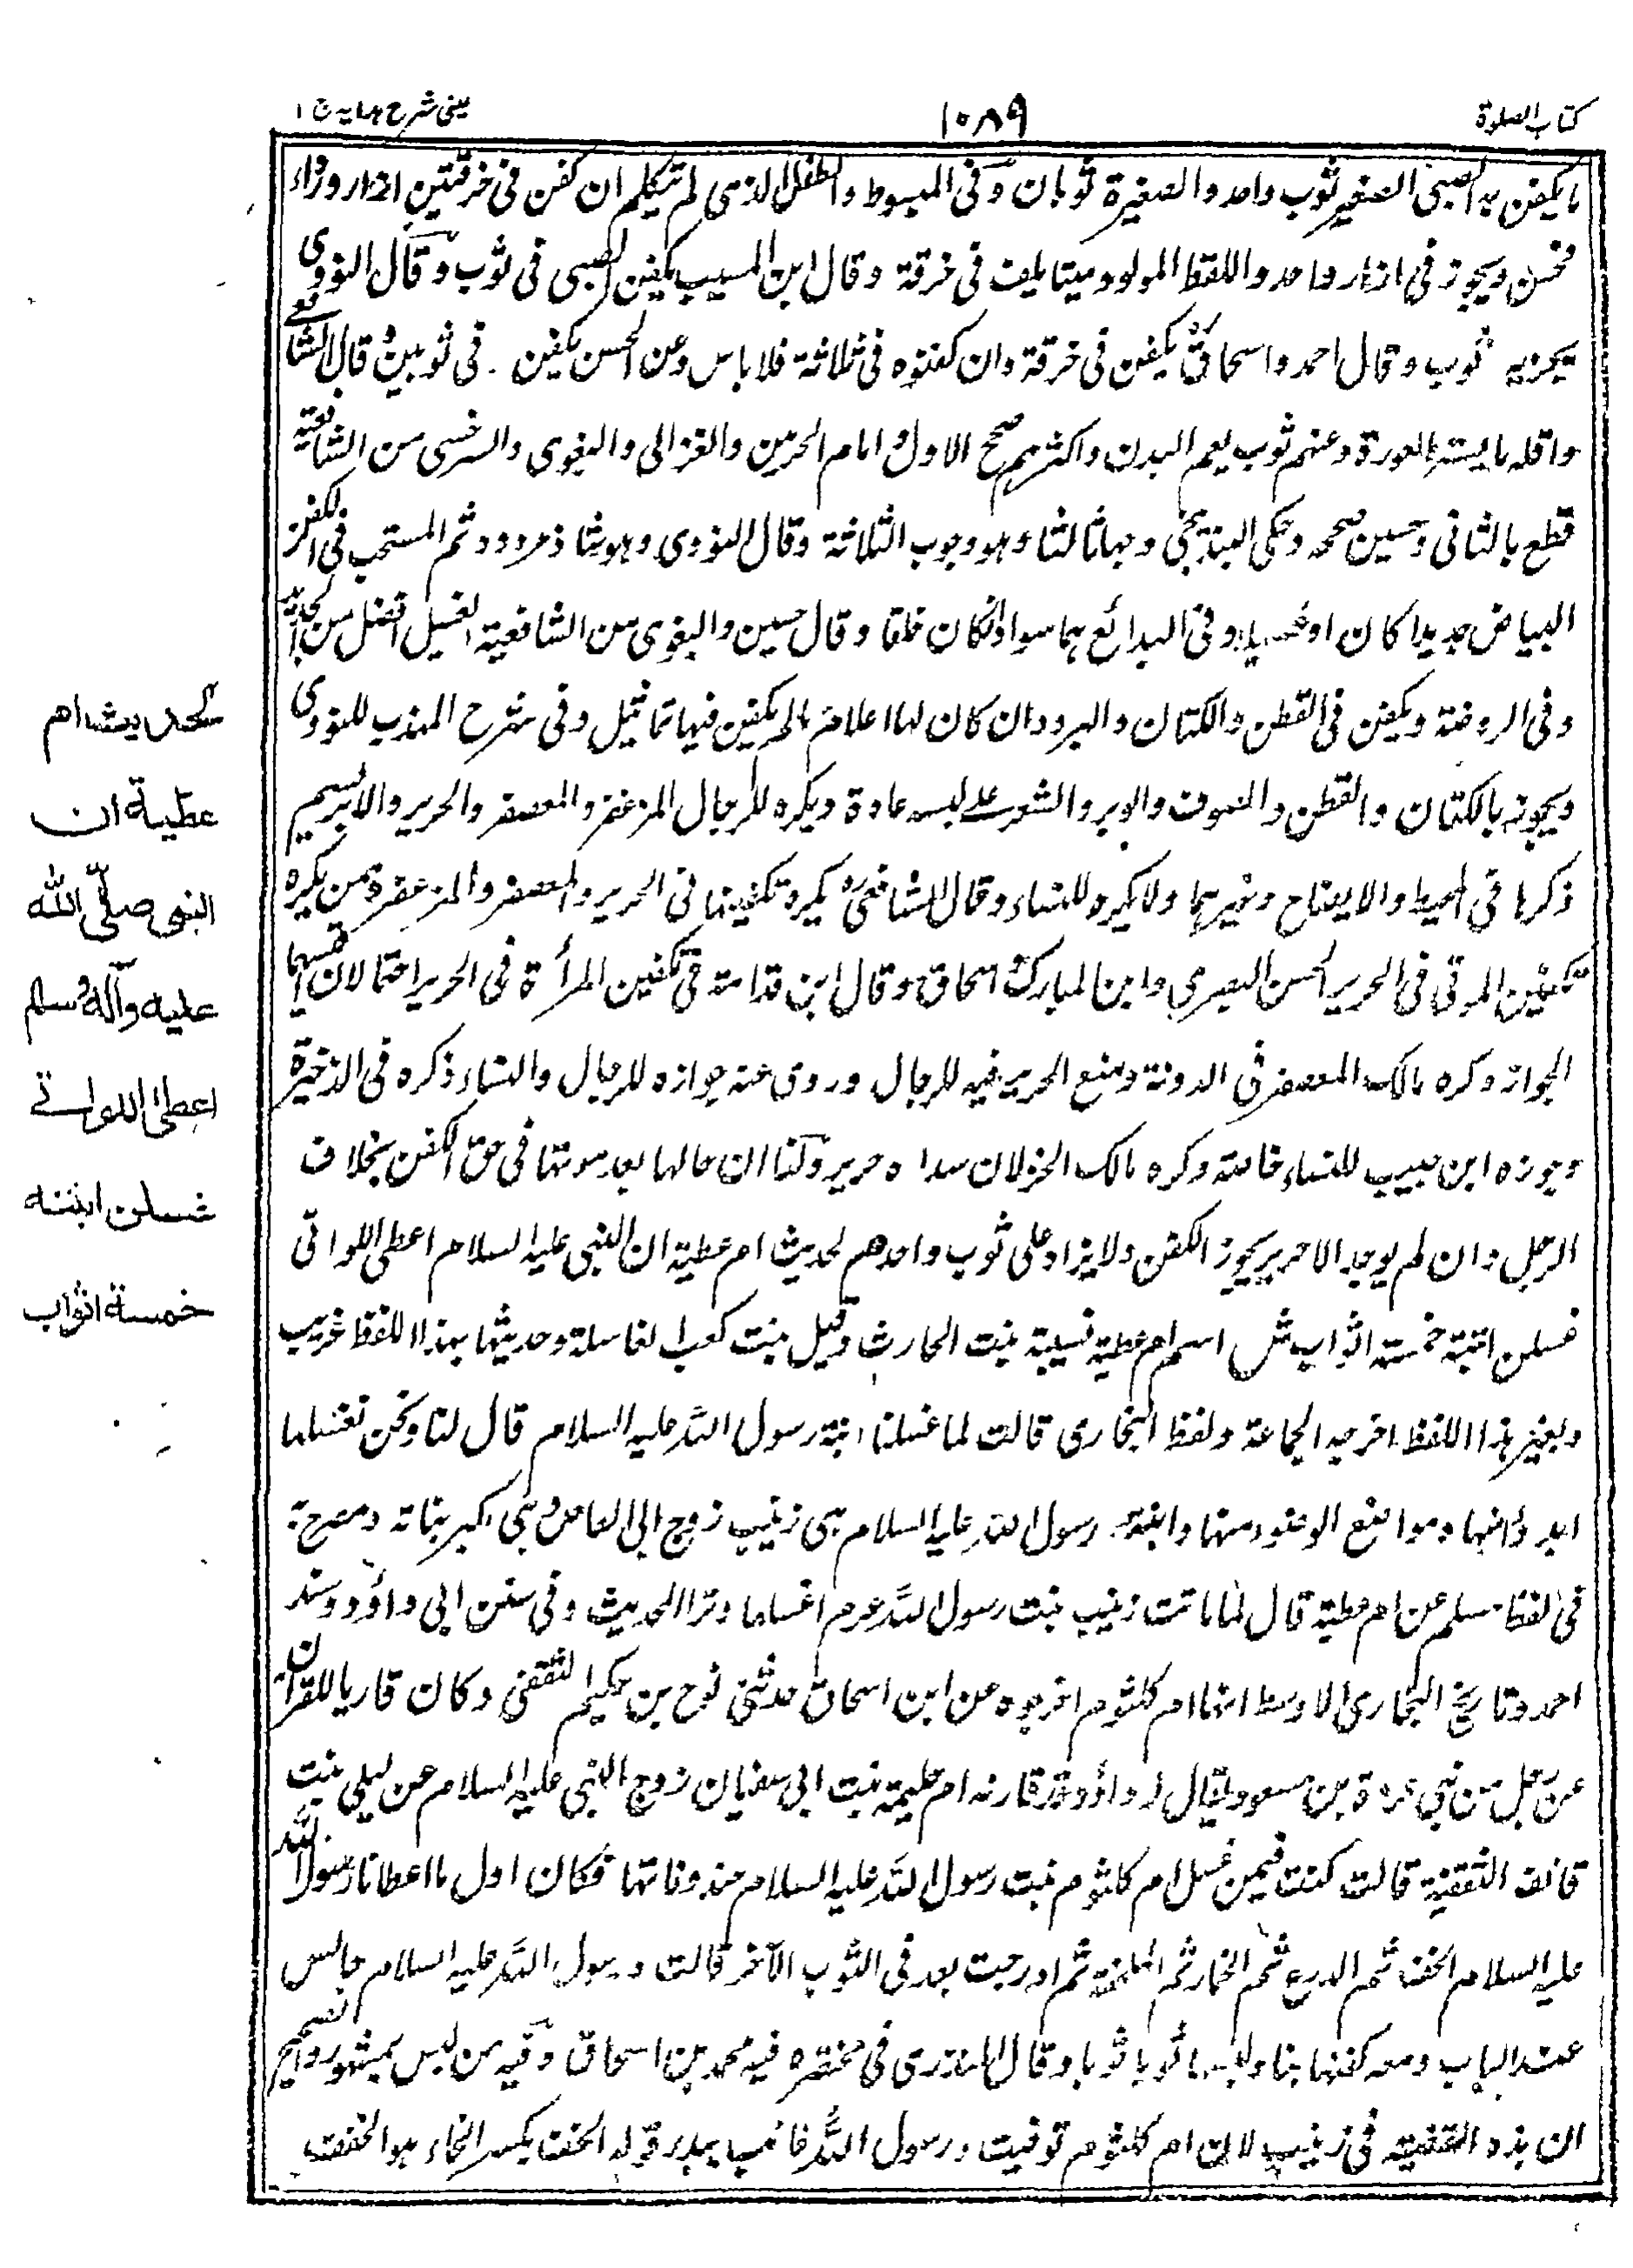 كتاب الصلوة
١٠٨٩
عينى شرح هدايه ج ١
ما يكفن به الصبى الصغير ثوب واحد والصغيرة ثوبان وفى المبسوط والطفل الذى لم يتكلم ان كفن فى خرقتين ازار ورداء
فحسن ويجوز فى ازار واحد والسقط المولود ميتا يلف فى خرقة وقال ابن المسيب يكفن الصبى فى ثوب وقال النووى
يجزيه ثوب وقال احمد واسحاق يكفن فى خرقة وان كفنوه فى ثلاثة فلا باس وعن الحسن يكفن فى ثوبين وقال الشافعى
واقله ما يستر العورة وعنهم ثوب يعم البدن واكثرهم صحح الاول وامام الحرمين والغزالى والبغوى والسرخسى من الشافعية
قطع بالثانى وحسين صححه وحكى البندنيجى وجها ثالثا وهو وجوب الثلاثة وقال النووى وهو شاذ مردود ثم المستحب فى الكفن
البياض جديدا كان او غسيلا وفى البدائع هما سواء ان كان خلقا وقال حسين والبغوى من الشافعية الغسيل افضل من الجديد
وفى الروضة ويكفن فى القطن والكتان والبرود ان كان لها اعلام ما لم يكفن فيها تماثيل وفى شرح المهذب للنووى
ويجوز بالكتان والقطن والصوف والوبر والشعر على لبسه عادة ويكره للرجال المزعفر والمعصفر والحرير والابريسم
ذكرها فى المحيط والايضاح وغيرهما ولا يكره للنساء وقال الشافعى يكره تكفينها فى الحرير والمعصفر والمزعفر وممن يكره
تكفين الموتى فى الحرير الحسن البصرى وابن المبارك واسحاق وقال ابن قدامة فى تكفين المرأة فى الحرير احتمالان اقيسهما
الجواز وكره مالك المعصفر فى المدونة ومنع الحرير فيه للرجال وروى عنه جوازه للرجال والنساء ذكره فى الذخيرة
وجوزه ابن حبيب للنساء خاصة وكره مالك الخز لان سداه حرير ولنا ان حالها بعد موتها فى حق الكفن بخلاف
الرجل وان لم يوجد الا حرير يجوز الكفن ولا يزاد على ثوب واحد هم لحديث ام عطية ان النبى عليه السلام اعطى اللواتى
غسلن ابنته خمسة اثواب ش اسم ام عطية نسيبة بنت الحارث وقيل بنت كعب الغاسلة وحديثها بهذا اللفظ غريب
وبغير هذا اللفظ اخرجه الجماعة ولفظ البخارى قالت لما غسلنا ابنة رسول الله عليه السلام قال لنا ونحن نغسلها
ابدء وابها ومواضع الوضوء منها وابنة رسول الله عليه السلام هى زينب زوج ابى العاص وهى اكبر بناته ومصرح به
فى لفظ مسلم عن ام عطية قال لما ماتت زينب بنت رسول الله عرم اغسلها وترا الحديث وفى سنن ابى داؤد ومسند
احمد وتاريخ البخارى الاوسط انها ام كلثوم اخرجوه عن ابن اسحاق حدثنى نوح بن حكيم الثقفى وكان قاريا للقرآن
عن رجل من بنى عروة بن مسعود يقال له داؤد قد ولدته ام حبيبة بنت ابى سفيان زوج النبى عليه السلام عن ليلى بنت
قانف الثقفية قالت كنت فيمن غسل ام كلثوم بنت رسول الله عليه السلام عند وفاتها فكان اول ما اعطانا رسول الله
عليه السلام الحقا ثم الدرع ثم الخمار ثم الملحفة ثم ادرجت بعد فى الثوب الآخر قالت ورسول الله عليه السلام جالس
عند الباب ومعه كفنها يناولناها ثوبا ثوبا وقال المنذرى فى مختصره فيه محمد بن اسحاق وفيه من ليس بمشهور والصحيح
ان هذه القضية فى زينب لان ام كلثوم توفيت ورسول الله غائب ببدر قوله الحقا بكسر الحاء هو الحقو
لحديث ام
عطية ان
النبى صلى الله
عليه وآله وسلم
اعطى اللواتى
غسلن ابنته
خمسة اثواب